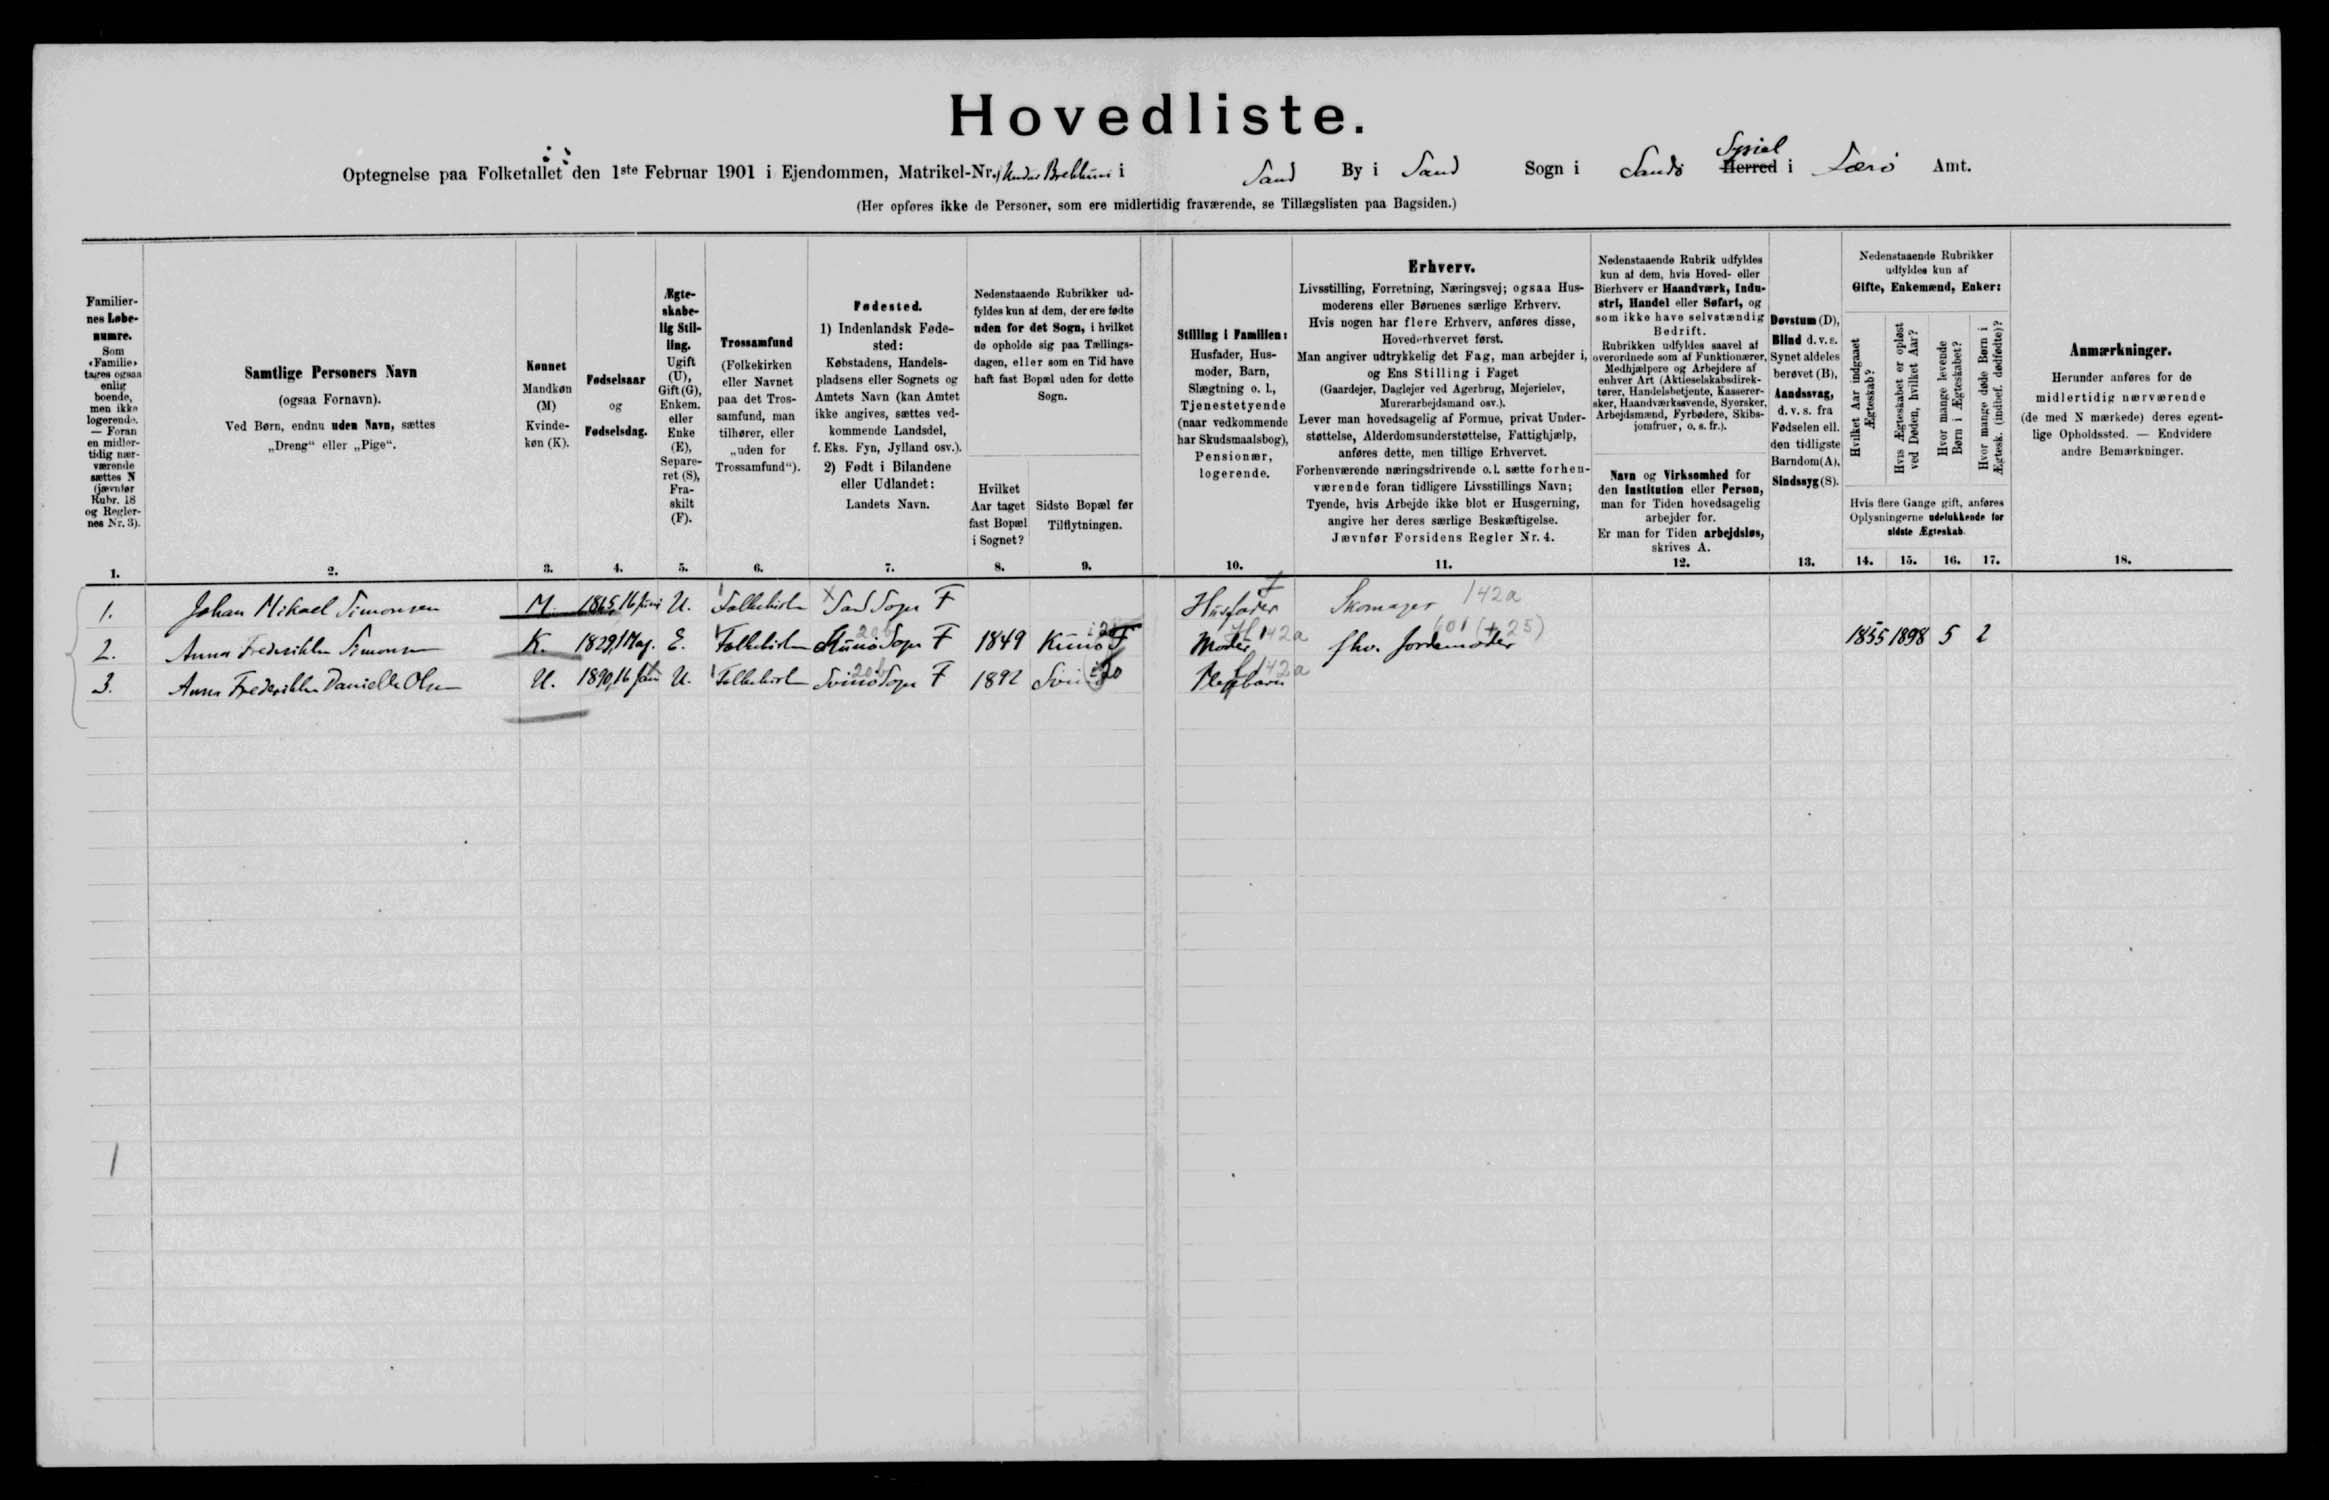 Hovedliste.
Optegnelse paa Folketallet den 1ste Februar 1901 i Ejendommen, Matrikel-Nr. Undir Brekkuni i Sand By i Sand Sogn i Sandø Herred Syssel i Færø Amt.
(Her opføres ikke de Personer, som ere midlertidig fraværende, se Tillægslisten paa Bagsiden.)
Familiernes Løbenumre.
Som «Familie» tages ogsaa enlig boende, men ikke logerende. — Foran en midlertidig nærværende sættes N (jævnfør Rubr. 18 og Reglernes Nr. 3).
1.
Samtlige Personers Navn
(ogsaa Fornavn).
Ved Børn, endnu uden Navn, sættes
„Dreng“ eller „Pige“.
2.
Kønnet
Mandkøn
(M)
Kvinde-
køn (K).
3.
Fødselsaar
og
Fødselsdag.
4.
Ægte-
skabe-
lig Stil-
ling.
Ugift
(U),
Gift (G),
Enkem.
eller
Enke
(E),
Separe-
ret (S),
Fra-
skilt
(F).
5.
Trossamfund
(Folkekirken
eller Navnet
paa det Tros-
samfund, man
tilhører, eller
„uden for
Trossamfund“).
6.
Fødested.
1) Indenlandsk Føde-
sted:
Købstadens, Handels-
pladsens eller Sognets og
Amtets Navn (kan Amtet
ikke angives, sættes ved-
kommende Landsdel,
f. Eks. Fyn, Jylland osv.).
2) Født i Bilandene
eller Udlandet:
Landets Navn.
7.
Nedenstaaende Rubrikker ud-
fyldes kun af dem, der ere fødte
uden for det Sogn, i hvilket
de opholde sig paa Tællings-
dagen, eller som en Tid have
haft fast Bopæl uden for dette
Sogn.
Hvilket
Aar taget
fast Bopæl
i Sognet?
8.
Sidste Bopæl før
Tilflytningen.
9.
Stilling i Familien:
Husfader, Hus-
moder, Barn,
Slægtning o. l.,
Tjenestetyende
(naar vedkommende
har Skudsmaalsbog),
Pensionær,
logerende.
10.
Erhverv.
Livsstilling, Forretning, Næringsvej; ogsaa Hus-
moderens eller Børnenes særlige Erhverv.
Hvis nogen har flere Erhverv, anføres disse,
Hovederhvervet først.
Man angiver udtrykkelig det Fag, man arbejder i,
og Ens Stilling i Faget
(Gaardejer, Daglejer ved Agerbrug, Mejerielev,
Murerarbejdsmand osv.).
Lever man hovedsagelig af Formue, privat Under-
støttelse, Alderdomsunderstøttelse, Fattighjælp,
anføres dette, men tillige Erhvervet.
Forhenværende næringsdrivende o. l. sætte forhen-
værende foran tidligere Livsstillings Navn;
Tyende, hvis Arbejde ikke blot er Husgerning,
angive her deres særlige Beskæftigelse.
Jævnfør Forsidens Regler Nr. 4.
11.
Nedenstaaende Rubrik udfyldes
kun af dem, hvis Hoved- eller
Bierhverv er Haandværk, Indu-
stri, Handel eller Søfart, og
som ikke have selvstændig
Bedrift.
Rubrikken udfyldes saavel af
overordnede som af Funktionærer,
Medhjælpere og Arbejdere af
enhver Art (Aktieselskabsdirek-
tører, Handelsbetjente, Kasserer-
sker, Haandværkssvende, Syersker,
Arbejdsmænd, Fyrbødere, Skibs-
jomfruer, o. s. fr.).
Navn og Virksomhed for
den Institution eller Person,
man for Tiden hovedsagelig
arbejder for.
Er man for Tiden arbejdsløs,
skrives A.
12.
Døvstum (D),
Blind d. v. s.
Synet aldeles
berøvet (B),
Aandssvag,
d. v. s. fra
Fødselen ell.
den tidligste
Barndom (A),
Sindssyg (S).
13.
Nedenstaaende Rubrikker
udfyldes kun af
Gifte, Enkemænd, Enker:
Hvilket Aar indgaaet Ægteskab?
Hvis Ægteskabet er opløst ved Døden, hvilket Aar?
Hvor mange levende Børn i Ægteskabet?
Hvor mange døde Børn i Ægtesk. (indbef. dødfødte)?
Hvis flere Gange gift, anføres
Oplysningerne udelukkende for
sidste Ægteskab.
14. 15. 16. 17.
Anmærkninger.
Herunder anføres for de
midlertidig nærværende
(de med N mærkede) deres egent-
lige Opholdssted. — Endvidere
andre Bemærkninger.
18.
1. Johan Mikael Simonsen M. 1865, 16 Juni U. Folkekirken Sand Sogn F Husfader Skomager 142a
2. Anna Frederikke Simonsen K. 1829, 1 Maj. E. Folkekirken Kunø Sogn F 1849 Kunø F Moder 142a fhv. Jordemoder 601 (+25) 1855 1898 5 2
3. Anna Frederikke Danielle Olsen U. 1890, 16 U. Folkekirken Svinø Sogn F 1892 Plejebarn 142a